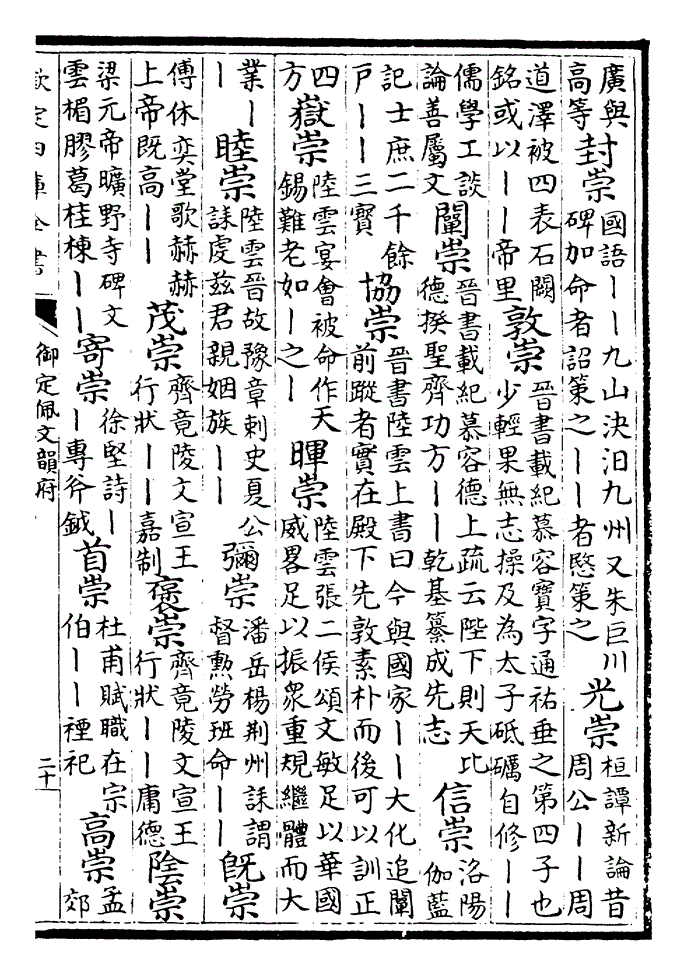 廣與
高等
封崇
國語——九山決汨九州又朱巨川
碑加命者詔策之——者愍策之
光崇
桓譚新論昔
周公——周
道澤被四表石闕
銘或以——帝里
敦崇
晉書載紀慕容寶字通祐垂之第四子也
少輕果無志操及為太子砥礪自修——
儒學工談
論善屬文
闡崇
晉書載紀慕容德上疏云陛下則天比
德揆聖齊功方——乾基纂成先志
信崇
洛陽
伽藍
記士庶二千餘
戸——三寳
協崇
晉書陸雲上書曰今與國家——大化追闡
前蹤者實在殿下先敦素朴而後可以訓正
四
方
嶽崇
陸雲宴會被命作天
錫難老如—之—
暉崇
陸雲張二侯頌文敏足以華國
威畧足以振衆重規繼體而大
業—
—
睦崇
陸雲晉故豫章刺史夏公
誄虔兹君親姻族——
彌崇
潘岳楊荆州誄謂
督勲勞班命——
旣崇
傅休奕堂歌赫赫
上帝既高——
茂崇
齊竟陵文宣王
行狀——嘉制
褒崇
齊竟陵文宣王
行狀——庸德
陰崇
梁元帝曠野寺碑文
雲楣膠葛桂棟——
寄崇
徐堅詩—
—專斧鉞
首崇
杜甫賦職在宗
伯——禋祀
高崇
孟
郊
欽定四庫全書
御定佩文韻府
二十